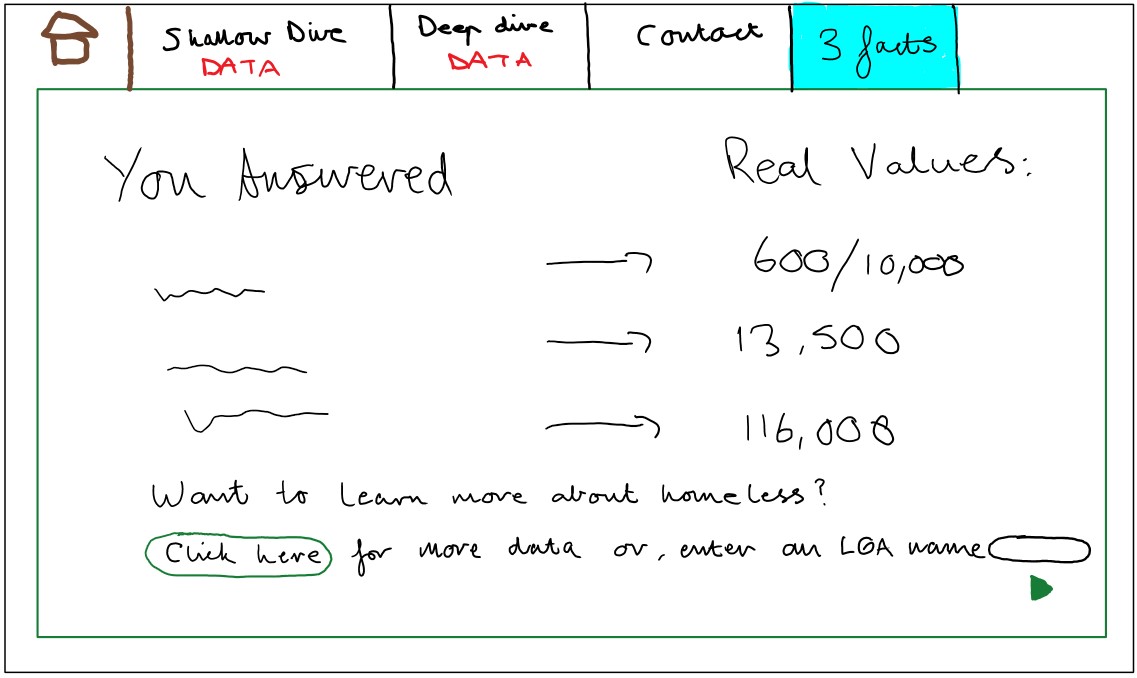 Shallow Dive
DATA
Deep dive
DATA
Contact
3 facts
You Answered
Real Values:
600/10,000
13,500
116,000
Want to Learn more about homeless?
Click here for more data or, enter an LGA name